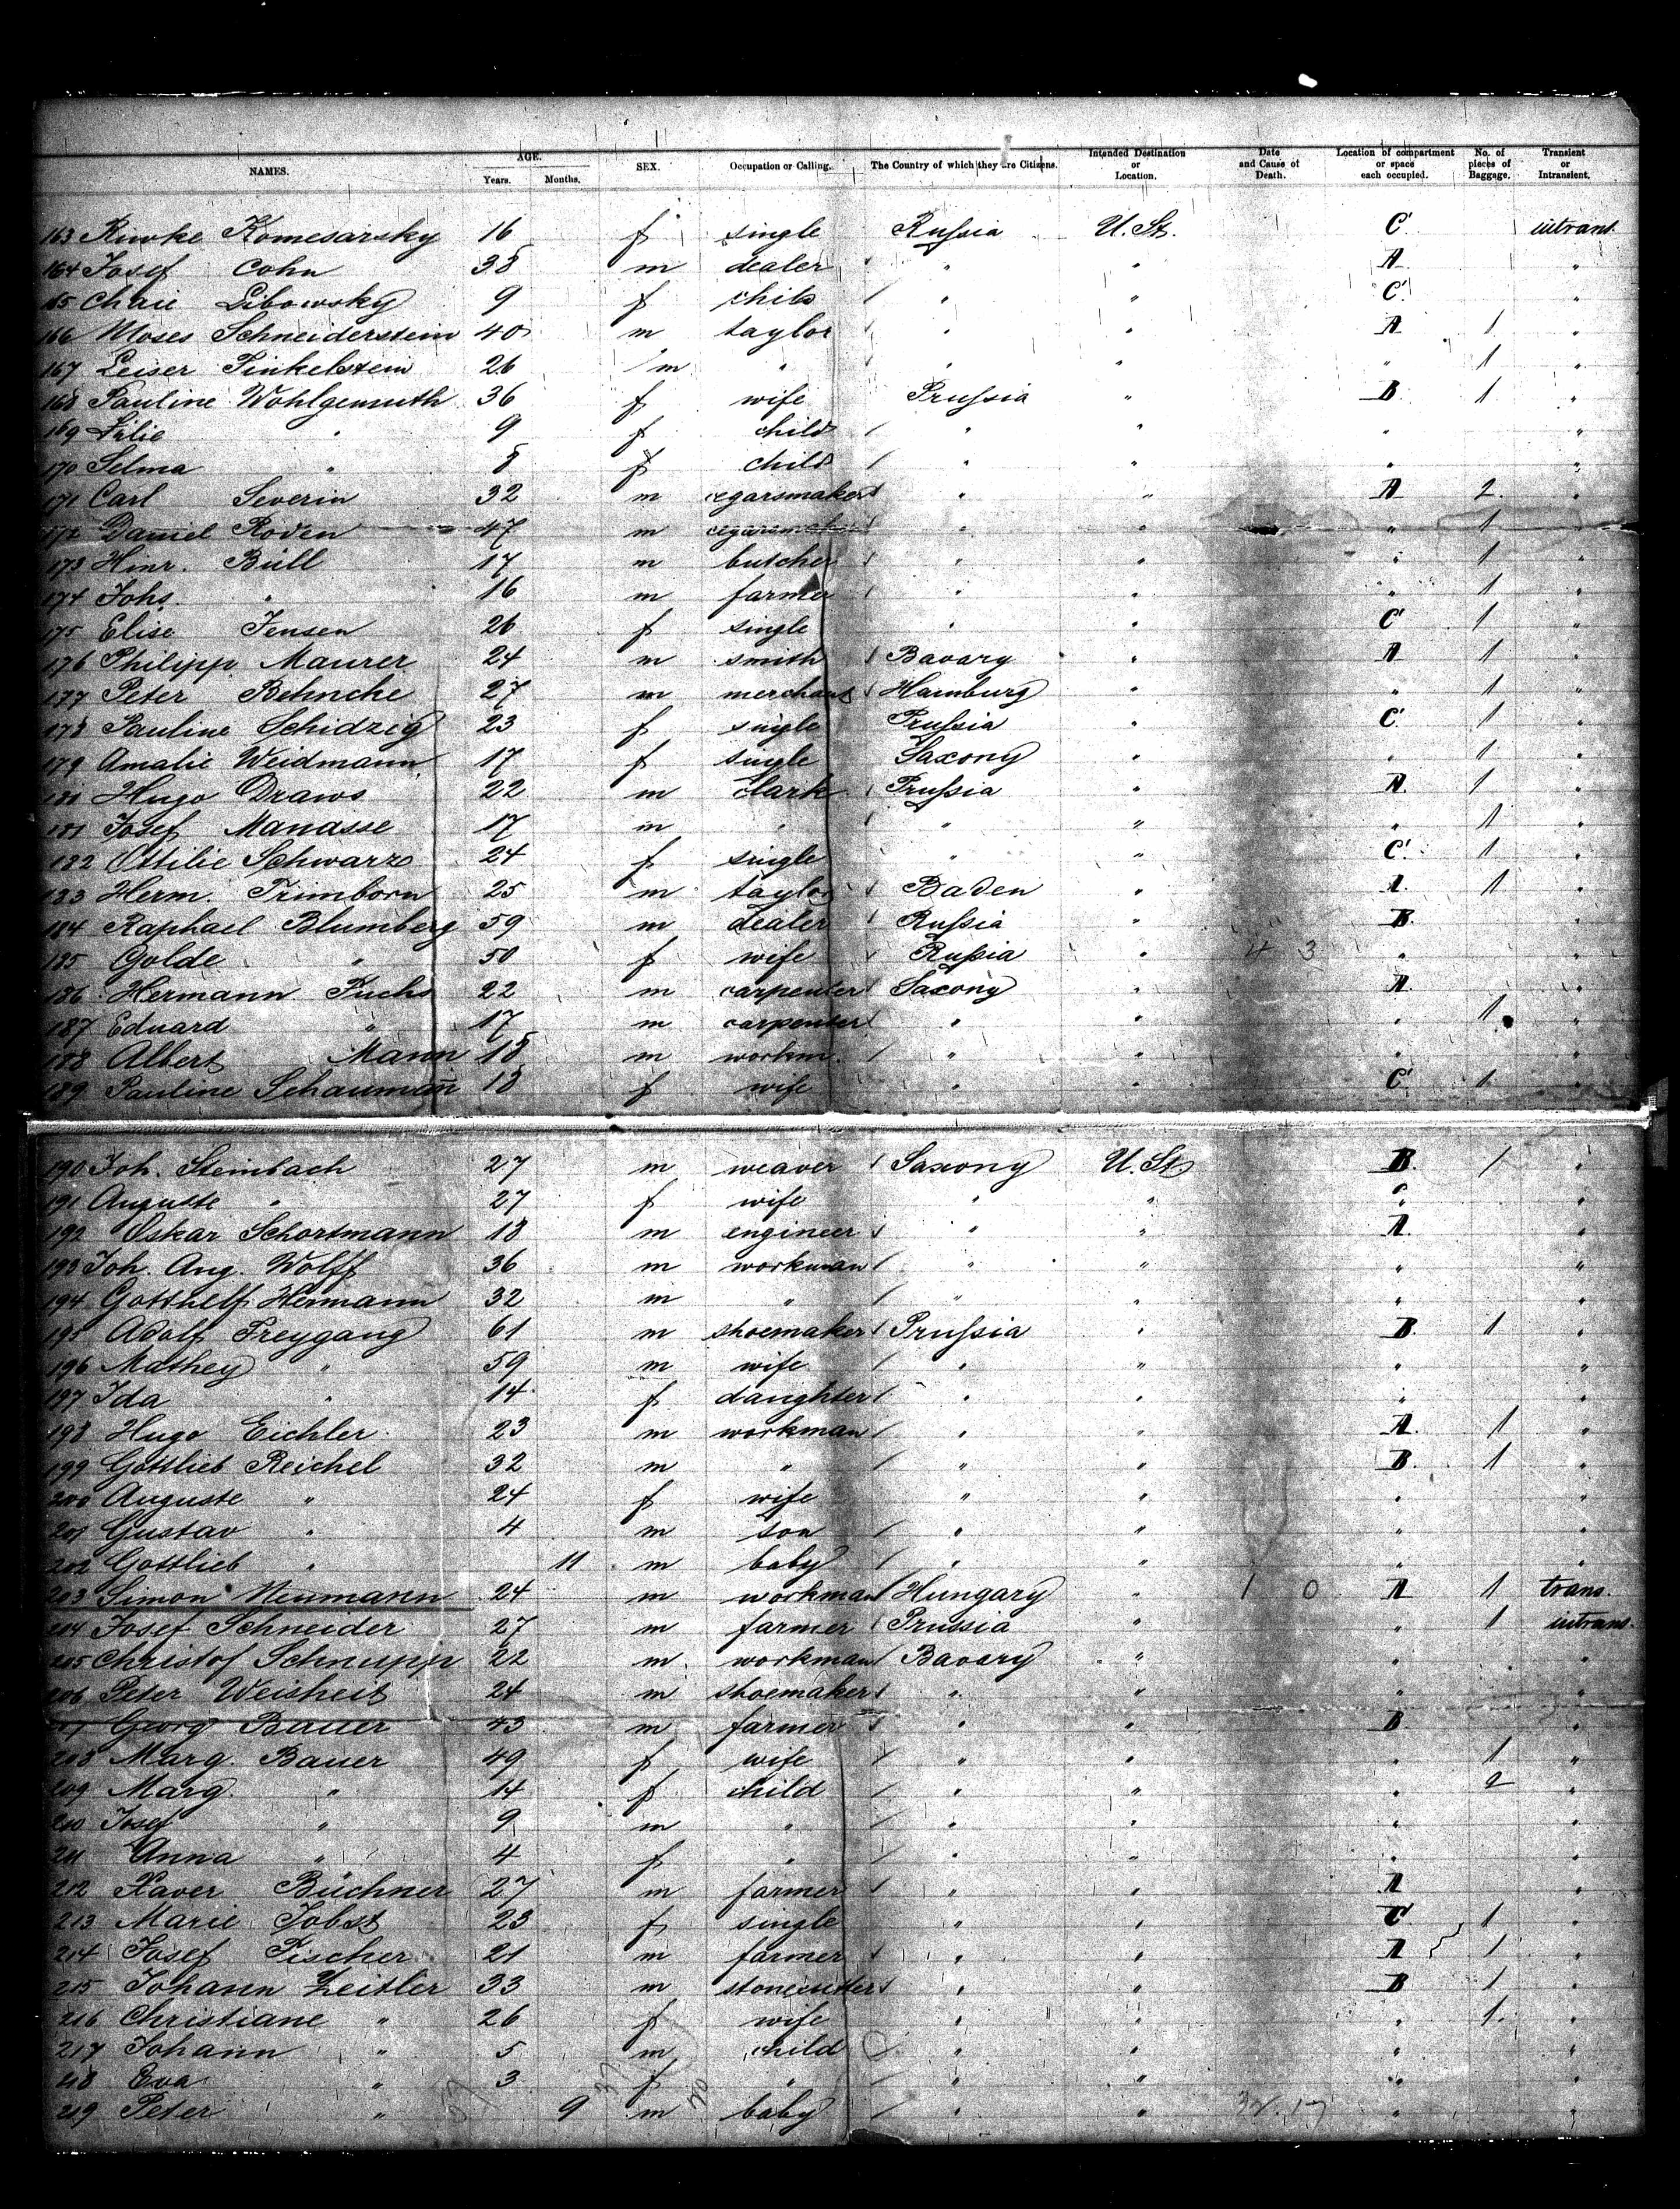 NAMES. AGE. Years. Months. SEX. Occupation or Calling. The Country of which they are Citizens. Intended Destination or Location. Date and Cause of Death. Location of compartment or space each occupied. No. of pieces of Baggage. Transient or Intransient.
163 Rivoke Komesarsky 16 f single Russia U. St. C intrans.
164 Josef Cohn 38 m dealer " " A "
165 Chaie Libowsky 9 f child " " C "
166 Moses Schneiderstein 40 m taylor " " A 1 "
167 Leiser Finkelstein 26 m " " " " 1 "
168 Pauline Wohlgemuth 36 f wife Prussia " B 1 "
169 Lilie " 9 f child " " " "
170 Selma " 8 f child " " " "
171 Carl Severin 32 m cegarsmaker " " A 2 "
172 Daniel Roden 47 m cegarsmaker " " " 1 "
173 Hinr. Büll 17 m butcher " " " 1 "
174 Johs. " 16 m farmer " " " 1 "
175 Elise Jensen 26 f single " " C 1 "
176 Philipp Maurer 24 m smith Bavary " A 1 "
177 Peter Behncke 27 m merchant Hamburg " " 1 "
178 Pauline Schidzig 23 f single Prussia " C 1 "
179 Amalie Weidmann 17 f single Saxony " " 1 "
180 Hugo Draws 22 m clark Prussia " A 1 "
181 Josef Manasse 17 m " " " " 1 "
182 Ottilie Schwarz 24 f single " " C 1 "
183 Herm. Trimborn 25 m taylor Baden " A 1 "
184 Raphael Blumberg 59 m dealer Russia " B "
185 Golde " 50 f wife Russia " 4 3 " "
186 Hermann Fuchs 22 m carpenter Saxony " A "
187 Eduard " 17 m carpenter " " " 1 "
188 Albert Mann 18 m workm. " " " "
189 Pauline Schaumann 18 f wife " " C 1 "
190 Joh. Steinbach 27 m weaver Saxony U. St. B 1 "
191 Auguste " 27 f wife " " " "
192 Oskar Schortmann 18 m engineer " " A "
193 Joh. Aug. Wolff 36 m workman " " " "
194 Gotthelf Hermann 32 m " " " " "
195 Adolf Freygang 61 m shoemaker Prussia " B 1 "
196 Mathey " 59 m wife " " " "
197 Ida " 14 f daughter " " " "
198 Hugo Eichler 23 m workman " " A 1 "
199 Gottlieb Reichel 32 m " " " B 1 "
200 Auguste " 24 f wife " " " "
201 Gustav " 4 m son " " " "
202 Gottlieb " 11 m baby " " " "
203 Simon Neumann 24 m workman Hungary " 1 0 A 1 trans.
204 Josef Schneider 27 m farmer Prussia " " 1 intrans.
205 Christof Schnupp 22 m workman Bavary " " "
206 Peter Weisheit 24 m shoemaker " " " "
207 Georg Bauer 43 m farmer " " B "
208 Marg. Bauer 49 f wife " " " 1 "
209 Marg. " 14 f child " " " 2 "
210 Josef " 9 m " " " " "
211 Anna " 4 f " " " " "
212 Xaver Büchner 27 m farmer " " A "
213 Marie Jobst 23 f single " " C 1 "
214 Josef Fischer 21 m farmer " " A 1 "
215 Johann Zeitler 33 m stonecutter " " B 1 "
216 Christiane " 26 f wife " " " 1 "
217 Johann " 5 m child " " " "
218 Eva " 3 f " " " " "
219 Peter " 9 m baby " " " "